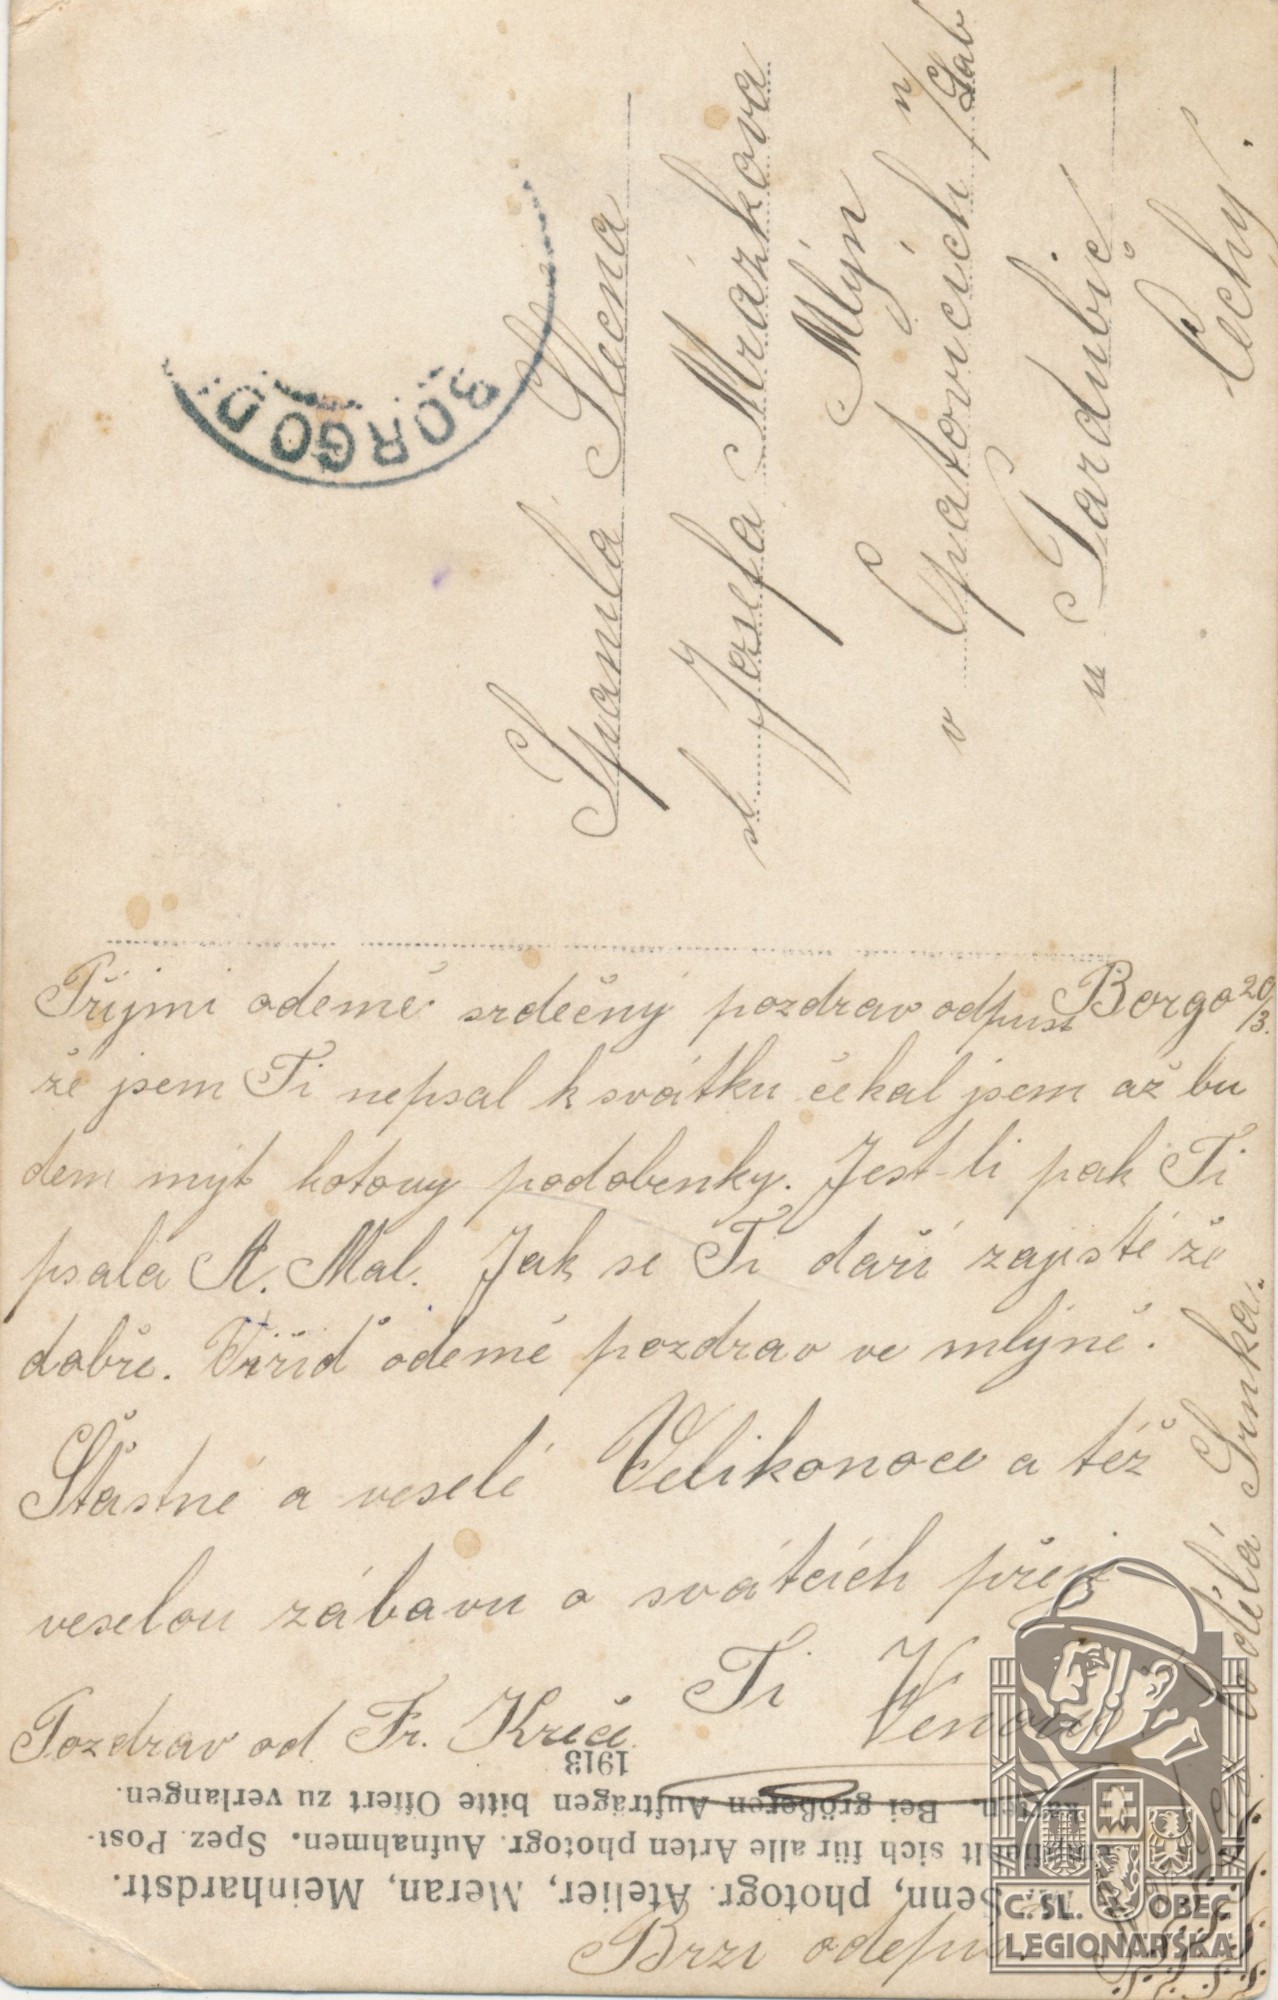 BORGO
Spanilá Slečna
sl Josefa Mrázkova
Mlýn
v Opatovicích n/Lab
u Pardubic
Čechy.
Borgo 20/3.
Přijmi odemě srdečný pozdrav odpust
že jsem Ti nepsal k svátku čekal jsem až bu
dem mýt hotovy podobenky. Jest-li pak Ti
psala A. Mal. Jak se Ti daří zajisté že
dobře. Vyřiď odemě pozdrav ve mlýně.
Štastné a veselé Velikonoce a též
veselou zábavu o svátcích přeji
Ti
Pozdrav od Fr.
Brzi
Srnka.
1913
Senn, photogr. Atelier, Meran, Meinhardstr.
sich für alle Arten photogr. Aufnahmen. Spez. Post-
karten. Bei größeren Aufträgen bitte Offert zu verlangen.
Č. SL. OBEC
LEGIONÁŘSKÁ